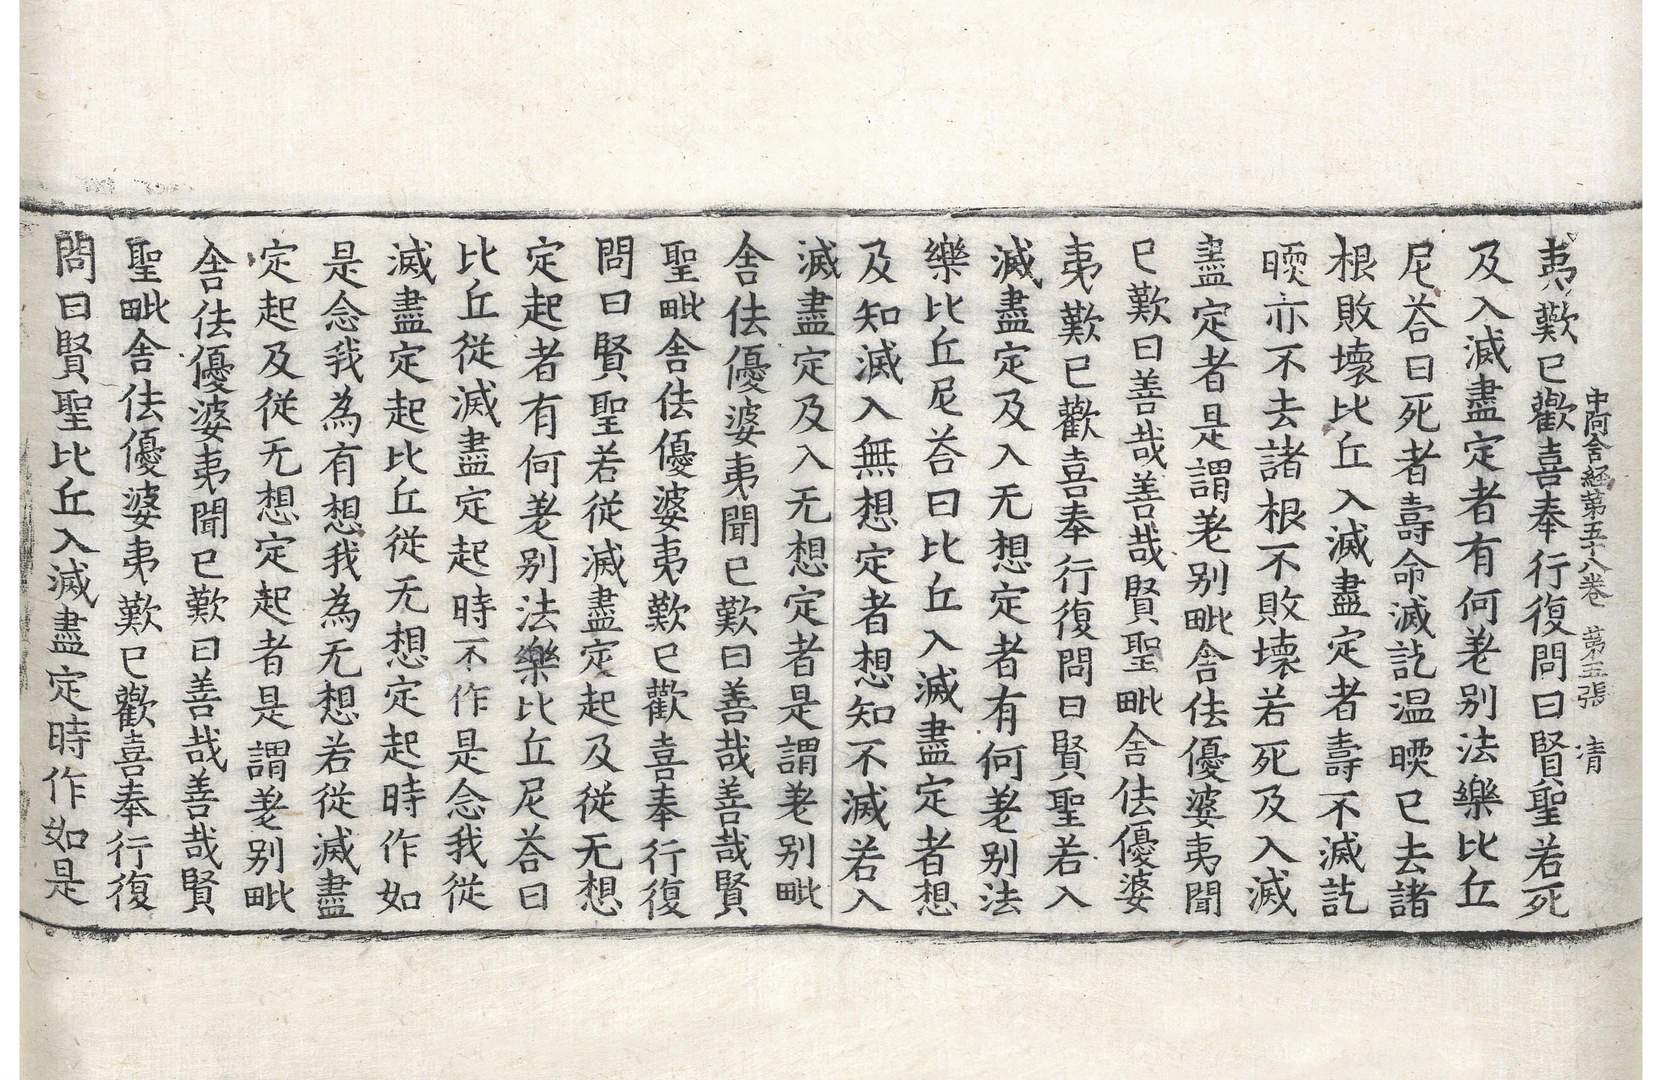 中阿含経第五十八巻　第五張　清
夷歎已歡喜奉行復問曰賢聖若死
及入滅盡定者有何差别法樂比丘
尼荅曰死者壽命滅訖温暖已去諸
根敗壞比丘入滅盡定者壽不滅訖
暖亦不去諸根不敗壞若死及入滅
盡定者是謂差别毗舍佉優婆夷聞
已歎曰善哉善哉賢聖毗舍佉優婆
夷歎已歡喜奉行復問曰賢聖若入
滅盡定及入无想定者有何差别法
樂比丘尼荅曰比丘入滅盡定者想
及知滅入無想定者想知不滅若入
滅盡定及入无想定者是謂差别毗
舍佉優婆夷聞已歎曰善哉善哉賢
聖毗舍佉優婆夷歎已歡喜奉行復
問曰賢聖若從滅盡定起及從无想
定起者有何差别法樂比丘尼荅曰
比丘從滅盡定起時不作是念我從
滅盡定起比丘從无想定起時作如
是念我為有想我為无想若從滅盡
定起及從无想定起者是謂差别毗
舍佉優婆夷聞已歎曰善哉善哉賢
聖毗舍佉優婆夷歎已歡喜奉行復
問曰賢聖比丘入滅盡定時作如是